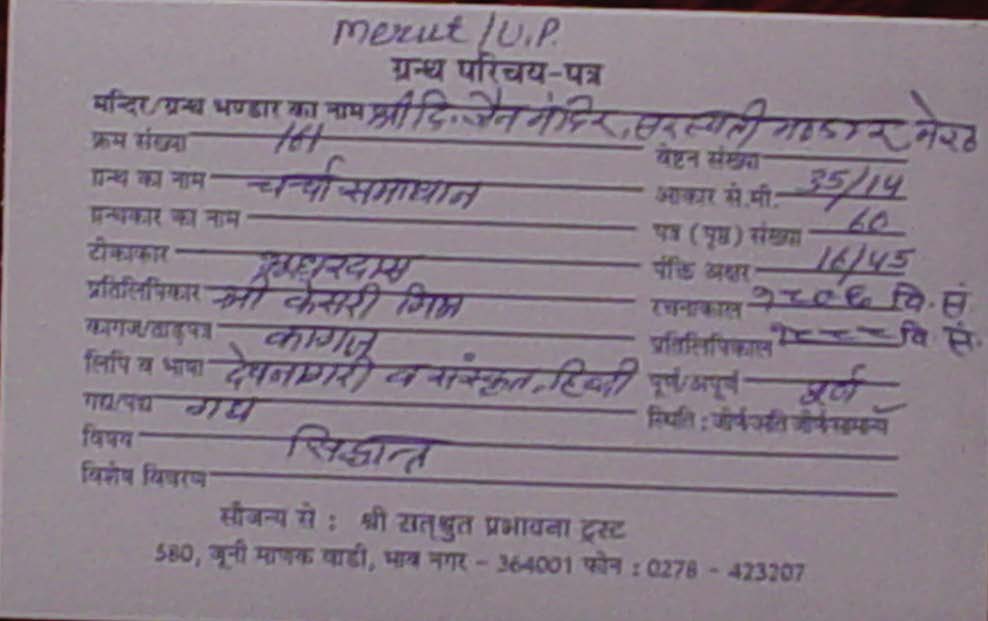 Merut / U.P.
ग्रन्थ परिचय-पत्र
मन्दिर/ग्रन्थ भण्डार का नाम श्री दि. जैन मंदिर, सरस्वती भण्डार मेरठ
क्रम संख्या 161 वेष्टन संख्या
ग्रन्थ का नाम चर्चा समाधान आकार से.मी. 35/14
ग्रन्थकार का नाम पत्र (पृष्ठ) संख्या 60
टीकाकार भूधरदास पंक्ति अक्षर 16/45
प्रतिलिपिकार श्री केसरी रचनाकाल १८०६ वि. सं.
कागज/ताड़पत्र कागज प्रतिलिपिकाल १८८८ वि. सं.
लिपि व भाषा देवनागरी व संस्कृत, हिन्दी पूर्ण/अपूर्ण पूर्ण
गद्य/पद्य गद्य स्थिति : जीर्ण/अति जीर्ण/सामान्य
विषय सिद्धान्त
विशेष विवरण
सौजन्य से : श्री सत्श्रुत प्रभावना ट्रस्ट
580, जूनी माणक वाडी, भाव नगर - 364001 फोन : 0278 - 423207